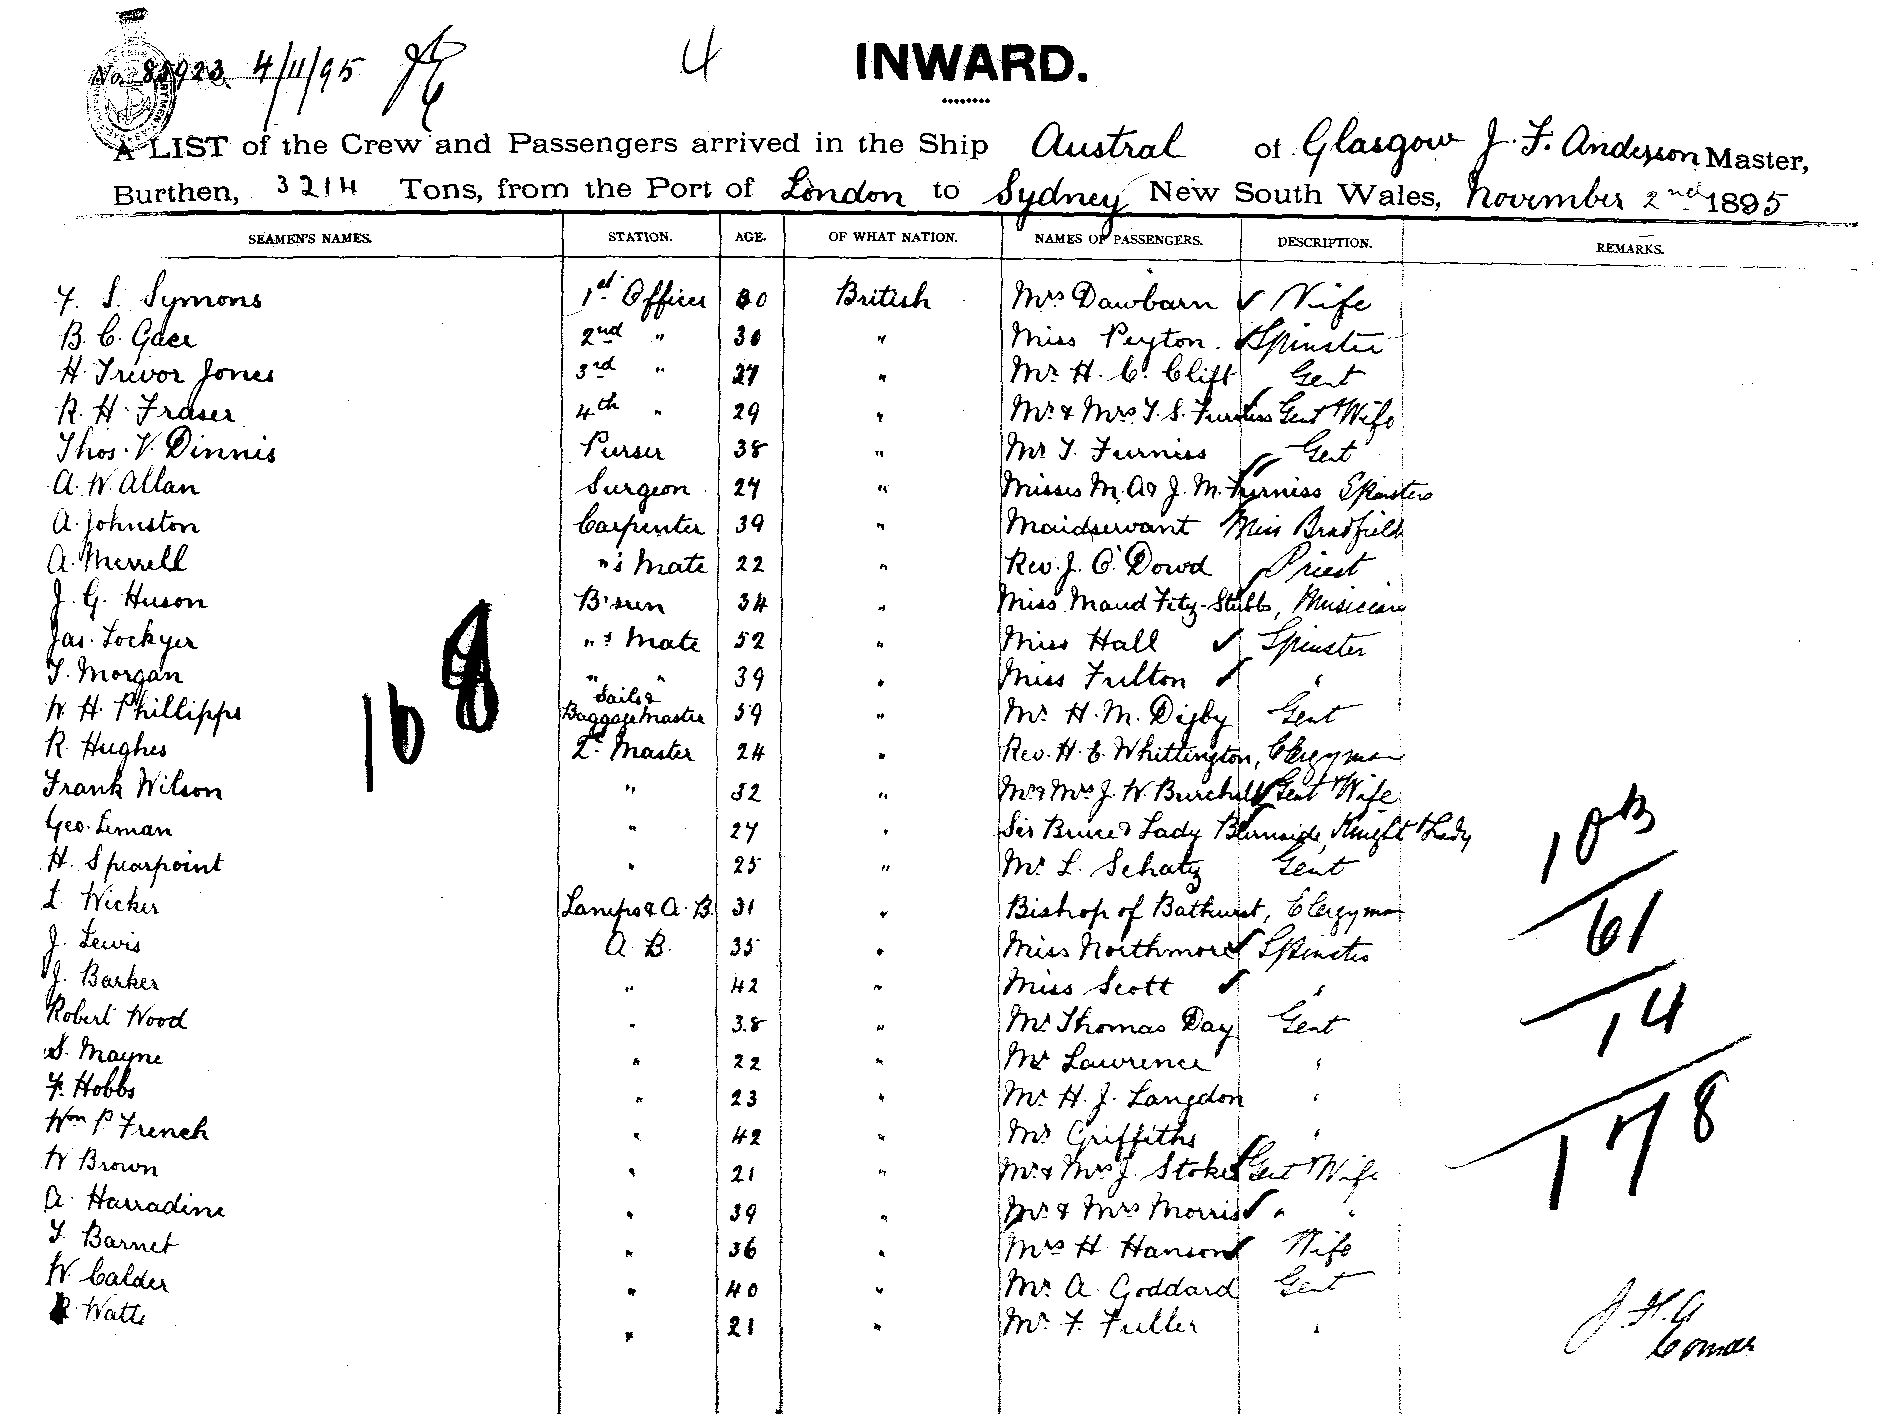 No. 85923 4/11/95 4 INWARD.
A LIST of the Crew and Passengers arrived in the Ship Austral of Glasgow J. F. Anderson Master,
Burthen, 3214 Tons, from the Port of London to Sydney New South Wales, November 2nd 1895
SEAMEN'S NAMES. STATION. AGE. OF WHAT NATION. NAMES OF PASSENGERS. DESCRIPTION. REMARKS.
F. S. Symons 1st Officer British Mrs Dawbarn Wife
B. C. 2nd " 30 " Miss Peyton. Spinster
H. Trevor Jones 3rd " 27 " Mr H. C. Clift Gent
R. H. Fraser 4th " 29 " Mr & Mrs T. S. Furniss Gent & Wife
Thos. V. Dinnis Purser 38 " Mr T. Furniss Gent
A. W. Allan Surgeon 27 " Misses M. A & J. M. Furniss Spinsters
A. Johnston Carpenter 39 " Maidservant Miss Bradfield
A. Merrell "'s Mate 22 " Rev. J. O'Dowd Priest
J. G. Huson B'sun 34 " Miss Maud Fitz-Stubbs, Musician
Jas. Lockyer "'s Mate 52 " Miss Hall Spinster
T. Morgan " " 39 " Miss Fulton "
W. H. Phillipps Sails & Baggage Master 59 " Mr H. M. Digby Gent
R. Hughes Qr Master 24 " Rev. H. E. Whittington, Clergyman
Frank Wilson " 32 " Mr & Mrs J. W. Burchill Gent & Wife
Geo. Leman " 27 " Sir Bruce & Lady Burnside, Knight & Lady
H. Spearpoint " 25 " Mr L. Schatz Gent
L. Wicker Lamps & A. B. 31 " Bishop of Bathurst, Clergyman
J. Lewis A. B. 35 " Miss Northmore Spinster
J. Barker " 42 " Miss Scott "
Robert Wood " 38 " Mr Thomas Day Gent
S. Mayne " 22 " Mr Lawrence "
F. Hobbs " 23 " Mr H. J. Langdon "
Wm P. French " 42 " Mr Griffiths "
W Brown " 21 " Mr & Mrs J. Stokes Gent & Wife
A. Harradine " 39 " Mr & Mrs Morris " "
T. Barnet " 36 " Mrs H Hanson Wife
W Calder " 40 " Mr A. Goddard Gent
R. Watts " 21 " Mr F. Fuller "
168
61
14
178